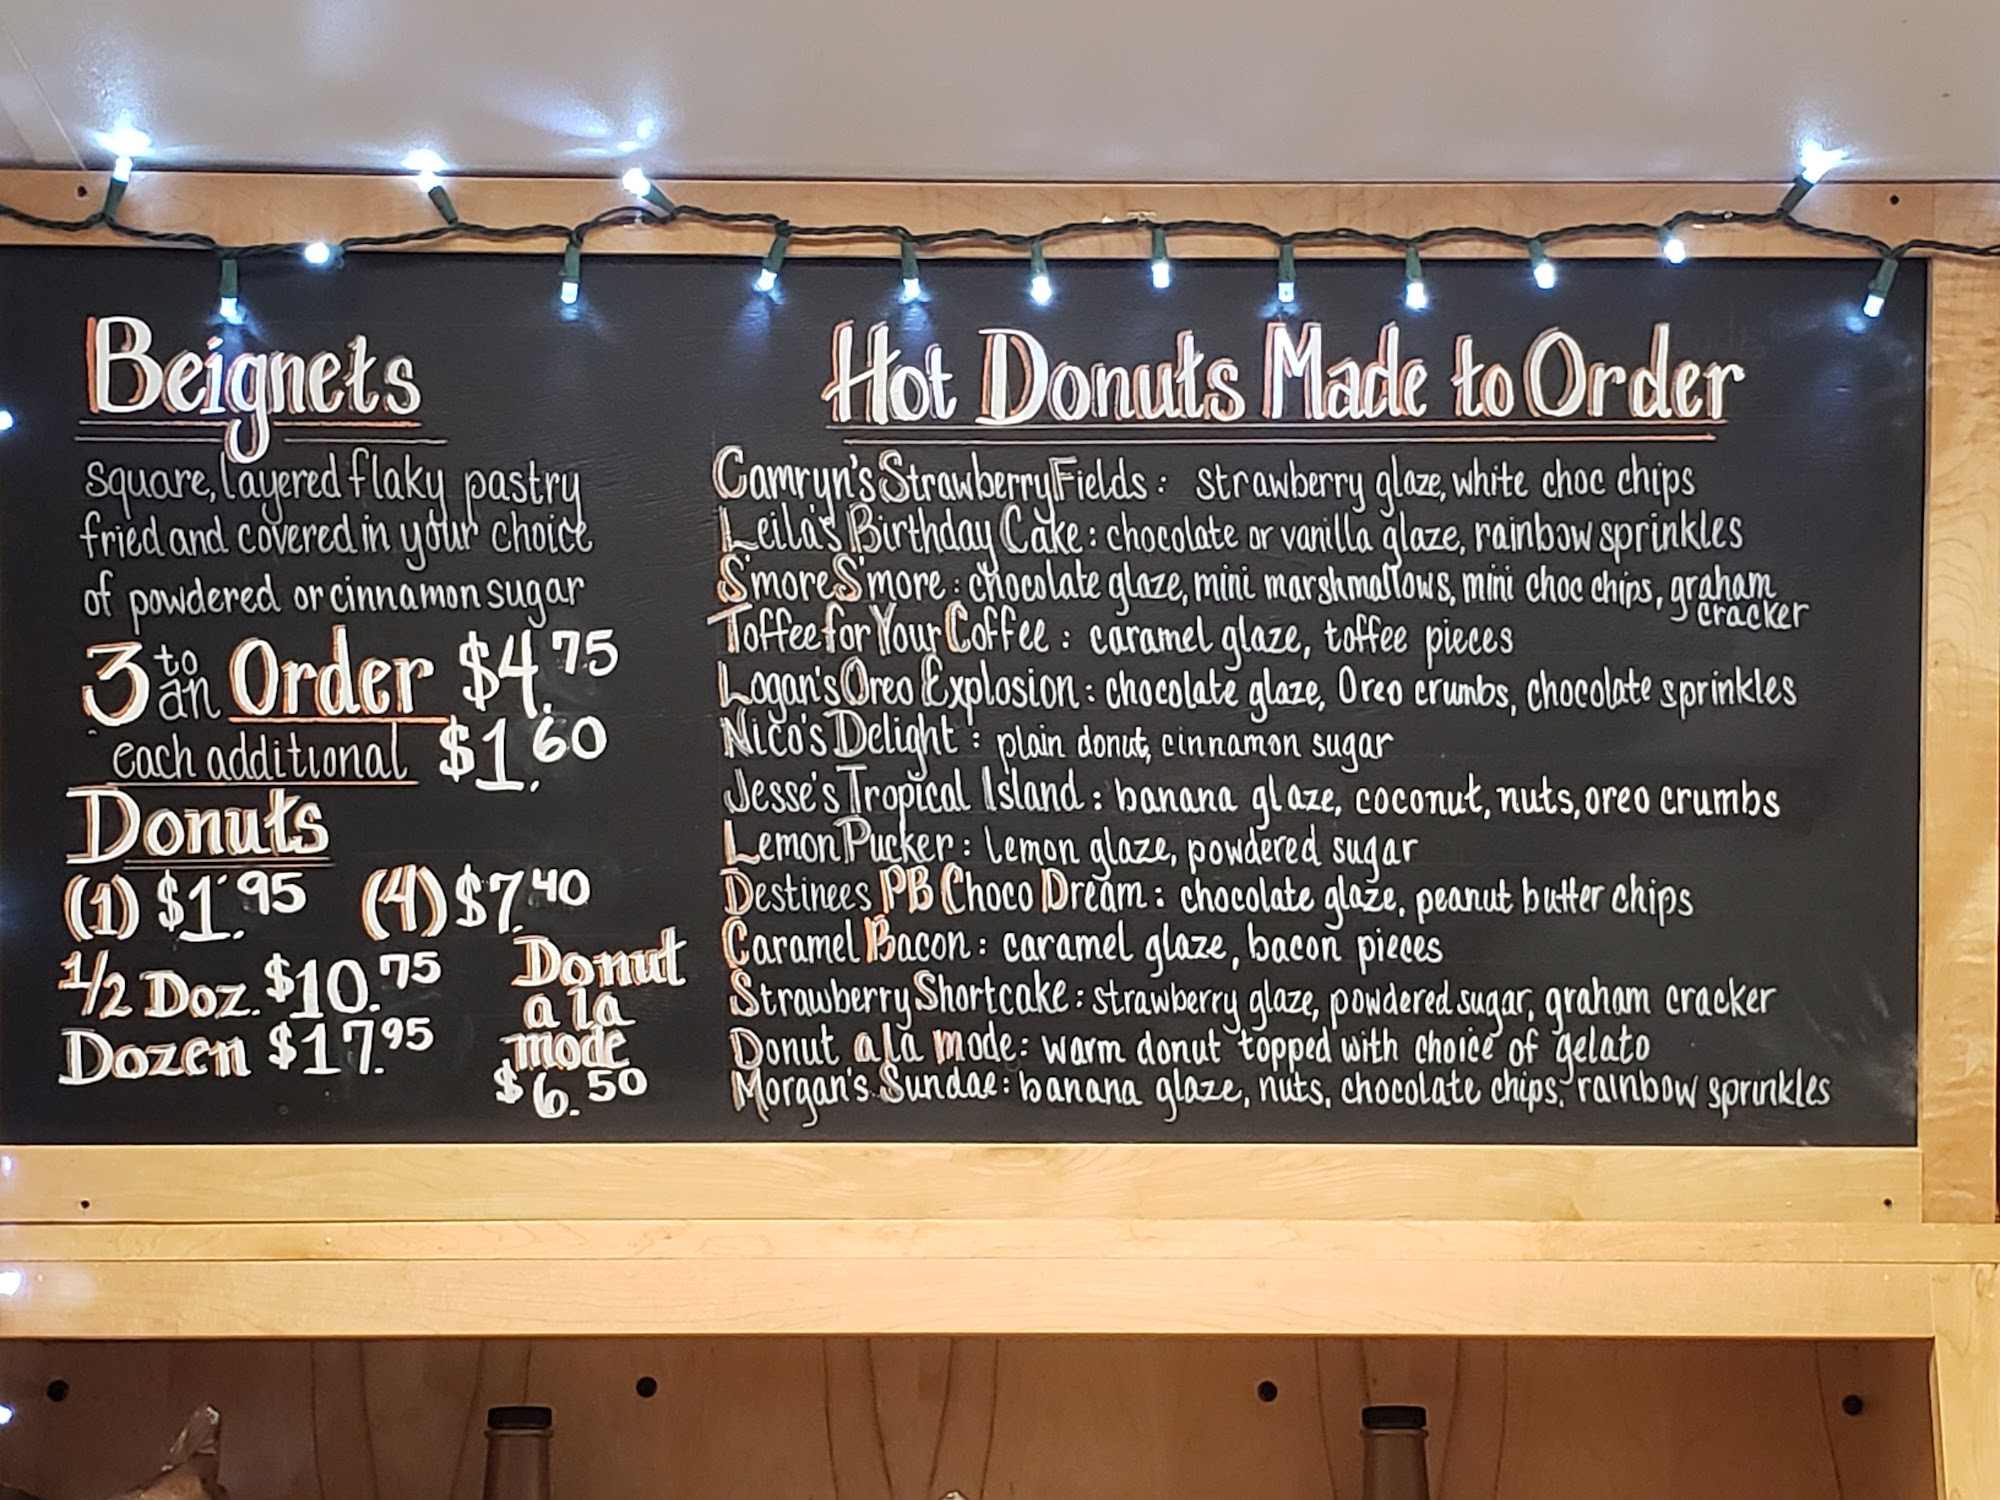 Beignets
square, layered flaky pastry
fried and covered in your choice
of powdered or cinnamon sugar
3 to an Order $4.75
each additional $1.60
Donuts
(1) $1.95 (4) $7.40
1/2 Doz. $10.75
Dozen $17.95
Donut
a la
mode
$6.50
Hot Donuts Made to Order
Camryn's Strawberry Fields: strawberry glaze, white choc chips
Leila's Birthday Cake: chocolate or vanilla glaze, rainbow sprinkles
S'more S'more: chocolate glaze, mini marshmallows, mini choc chips, graham
cracker
Toffee for Your Coffee: caramel glaze, toffee pieces
Logan's Oreo Explosion: chocolate glaze, Oreo crumbs, chocolate sprinkles
Nico's Delight: plain donut, cinnamon sugar
Jesse's Tropical Island: banana glaze, coconut, nuts, oreo crumbs
Lemon Pucker: lemon glaze, powdered sugar
Destinees PB Choco Dream: chocolate glaze, peanut butter chips
Caramel Bacon: caramel glaze, bacon pieces
Strawberry Shortcake: strawberry glaze, powdered sugar, graham cracker
Donut a la mode: warm donut topped with choice of gelato
Morgan's Sundae: banana glaze, nuts, chocolate chips, rainbow sprinkles